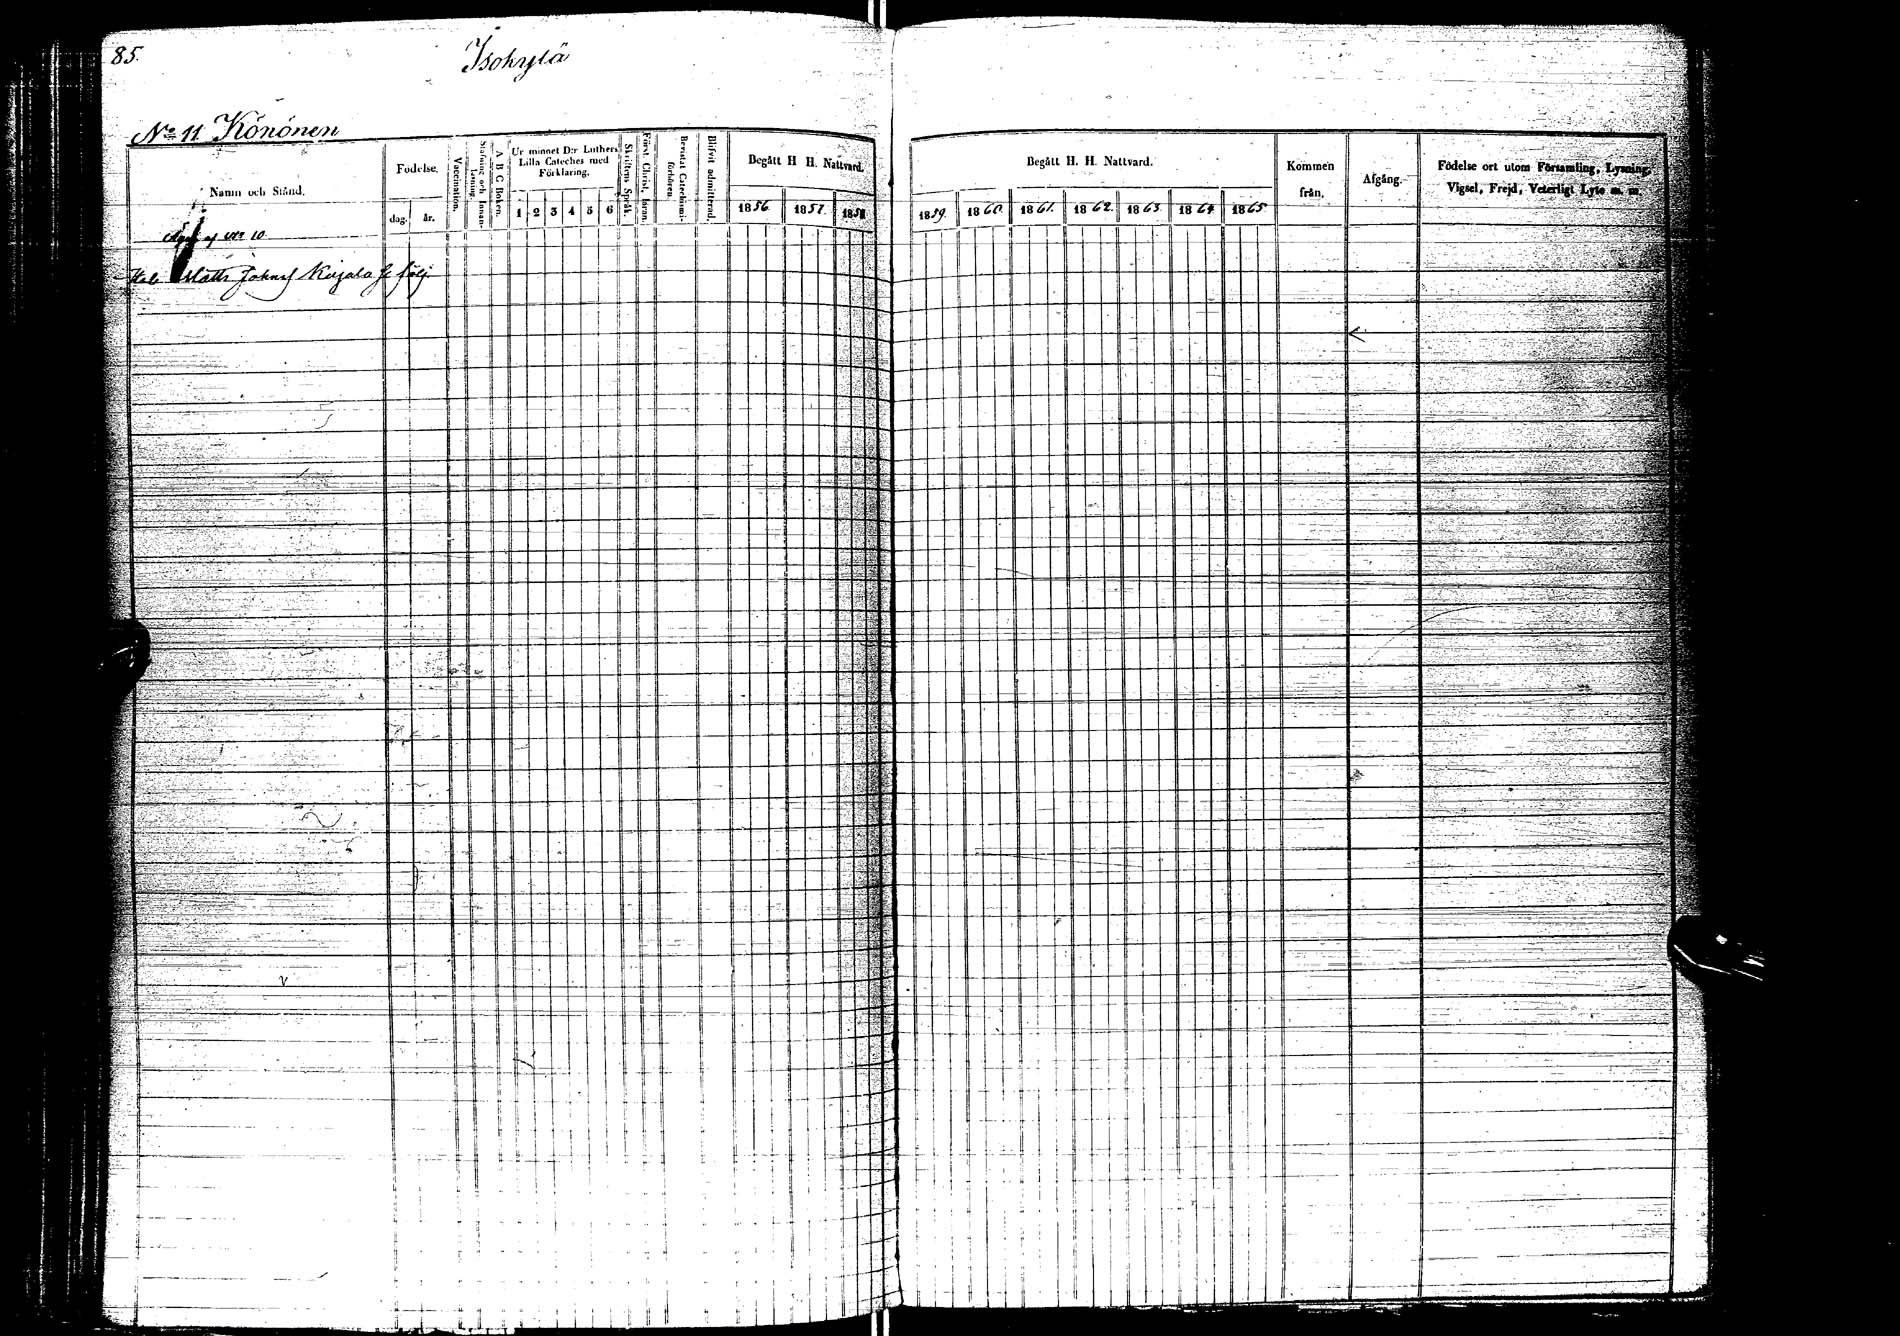 85.
Isokylä
No 11 Könönen
Namn och Stånd.
Födelse.
dag. år.
Vaccination.
Stafning och Innanläsning.
A B C Boken.
Ur minnet D:r Luthers
Lilla Cateches med
Förklaring.
1 2 3 4 5 6
Skriftens Språk.
Först. Christ. läran.
Bevistat Catechismi-
förhören.
Blifvit admitterad.
Begått H H. Nattvard.
1856. 1857. 1858
Begått H. H. Nattvard.
1859. 1860. 1861. 1862. 1863. 1864 1865
Kommen
från.
Afgång.
Födelse ort utom Församling, Lysning,
Vigsel, Frejd, Veterligt Lyte m. m.
af No 10.
Matts Johnsf Kojala se följ